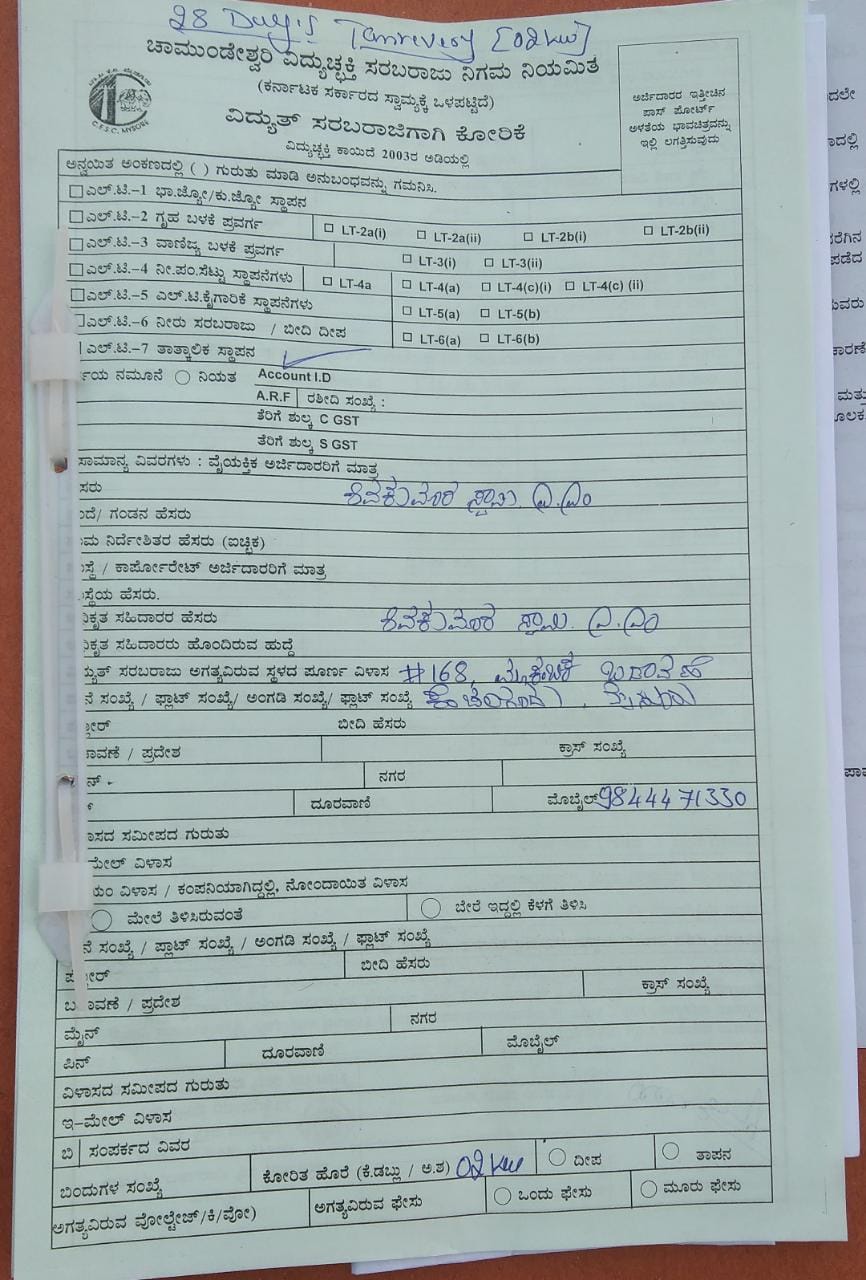 28 Day's Temrevery [02kw]
ಚಾಮುಂಡೇಶ್ವರಿ ವಿದ್ಯುಚ್ಛಕ್ತಿ ಸರಬರಾಜು ನಿಗಮ ನಿಯಮಿತ
(ಕರ್ನಾಟಕ ಸರ್ಕಾರದ ಸ್ವಾಮ್ಯಕ್ಕೆ ಒಳಪಟ್ಟಿದೆ)
ವಿದ್ಯುತ್ ಸರಬರಾಜಿಗಾಗಿ ಕೋರಿಕೆ
ವಿದ್ಯುಚ್ಛಕ್ತಿ ಕಾಯಿದೆ 2003ರ ಅಡಿಯಲ್ಲಿ
C.E.S.C. MYSORE
ಅರ್ಜಿದಾರರ ಇತ್ತೀಚಿನ
ಪಾಸ್ ಪೋರ್ಟ್
ಅಳತೆಯ ಭಾವಚಿತ್ರವನ್ನು
ಇಲ್ಲಿ ಲಗತ್ತಿಸುವುದು
ಅನ್ವಯಿತ ಅಂಕಣದಲ್ಲಿ ( ) ಗುರುತು ಮಾಡಿ ಅನುಬಂಧವನ್ನು ಗಮನಿಸಿ.
ಎಲ್.ಟಿ.–1 ಭಾ.ಜ್ಯೋ/ಕು.ಜ್ಯೋ ಸ್ಥಾಪನ
ಎಲ್.ಟಿ.–2 ಗೃಹ ಬಳಕೆ ಪ್ರವರ್ಗ LT-2a(i) LT-2a(ii) LT-2b(i) LT-2b(ii)
ಎಲ್.ಟಿ.–3 ವಾಣಿಜ್ಯ ಬಳಕೆ ಪ್ರವರ್ಗ LT-3(i) LT-3(ii)
ಎಲ್.ಟಿ.–4 ನೀ.ಪಂ.ಸೆಟ್ಟು ಸ್ಥಾಪನೆಗಳು LT-4a LT-4(a) LT-4(c)(i) LT-4(c) (ii)
ಎಲ್.ಟಿ.–5 ಎಲ್.ಟಿ.ಕೈಗಾರಿಕೆ ಸ್ಥಾಪನೆಗಳು LT-5(a) LT-5(b)
ಎಲ್.ಟಿ.–6 ನೀರು ಸರಬರಾಜು / ಬೀದಿ ದೀಪ LT-6(a) LT-6(b)
ಎಲ್.ಟಿ.–7 ತಾತ್ಕಾಲಿಕ ಸ್ಥಾಪನ
ರ್ಯ ನಮೂನೆ ನಿಯತ Account I.D
A.R.F ರಶೀದಿ ಸಂಖ್ಯೆ :
ತೆರಿಗೆ ಶುಲ್ಕ C GST
ತೆರಿಗೆ ಶುಲ್ಕ S GST
ಸಾಮಾನ್ಯ ವಿವರಗಳು : ವೈಯಕ್ತಿಕ ಅರ್ಜಿದಾರರಿಗೆ ಮಾತ್ರ
ಸರು ಶಿವಕುಮಾರ ಸ್ವಾಮಿ
ದೆ/ ಗಂಡನ ಹೆಸರು
ಮ ನಿರ್ದೇಶಿತರ ಹೆಸರು (ಐಚ್ಛಿಕ)
ಸ್ಥೆ / ಕಾರ್ಪೋರೇಟ್ ಅರ್ಜಿದಾರರಿಗೆ ಮಾತ್ರ
ಸ್ಥೆಯ ಹೆಸರು.
ಕೃತ ಸಹಿದಾರರ ಹೆಸರು ಶಿವಕುಮಾರ ಸ್ವಾಮಿ
ಕೃತ ಸಹಿದಾರರು ಹೊಂದಿರುವ ಹುದ್ದೆ
ಯುತ್ ಸರಬರಾಜು ಅಗತ್ಯವಿರುವ ಸ್ಥಳದ ಪೂರ್ಣ ವಿಳಾಸ #168,
ನೆ ಸಂಖ್ಯೆ / ಫ್ಲಾಟ್ ಸಂಖ್ಯೆ/ ಅಂಗಡಿ ಸಂಖ್ಯೆ/ ಫ್ಲಾಟ್ ಸಂಖ್ಯೆ
ೋರ್ ಬೀದಿ ಹೆಸರು
ಾವಣೆ / ಪ್ರದೇಶ ಕ್ರಾಸ್ ಸಂಖ್ಯೆ
ನ್ ನಗರ
ದೂರವಾಣಿ ಮೊಬೈಲ್ 9844471330
ಾಸದ ಸಮೀಪದ ಗುರುತು
ಮೇಲ್ ವಿಳಾಸ
ಯಂ ವಿಳಾಸ / ಕಂಪನಿಯಾಗಿದ್ದಲ್ಲಿ, ನೋಂದಾಯಿತ ವಿಳಾಸ
ಮೇಲೆ ತಿಳಿಸಿರುವಂತೆ ಬೇರೆ ಇದ್ದಲ್ಲಿ ಕೆಳಗೆ ತಿಳಿಸಿ
ನೆ ಸಂಖ್ಯೆ / ಪ್ಲಾಟ್ ಸಂಖ್ಯೆ / ಅಂಗಡಿ ಸಂಖ್ಯೆ / ಫ್ಲಾಟ್ ಸಂಖ್ಯೆ
ೋರ್ ಬೀದಿ ಹೆಸರು
ಬ ಾವಣೆ / ಪ್ರದೇಶ ಕ್ರಾಸ್ ಸಂಖ್ಯೆ
ಮೈನ್ ನಗರ
ಪಿನ್ ದೂರವಾಣಿ ಮೊಬೈಲ್
ವಿಳಾಸದ ಸಮೀಪದ ಗುರುತು
ಇ–ಮೇಲ್ ವಿಳಾಸ
ಬಿ ಸಂಪರ್ಕದ ವಿವರ
ಬಿಂದುಗಳ ಸಂಖ್ಯೆ ಕೋರಿತ ಹೊರೆ (ಕೆ.ಡಬ್ಲು / ಅ.ಶ) 02kw ದೀಪ ತಾಪನ
ಅಗತ್ಯವಿರುವ ವೋಲ್ಟೇಜ್/ಕಿ/ವೋ) ಅಗತ್ಯವಿರುವ ಫೇಸು ಒಂದು ಫೇಸು ಮೂರು ಫೇಸು